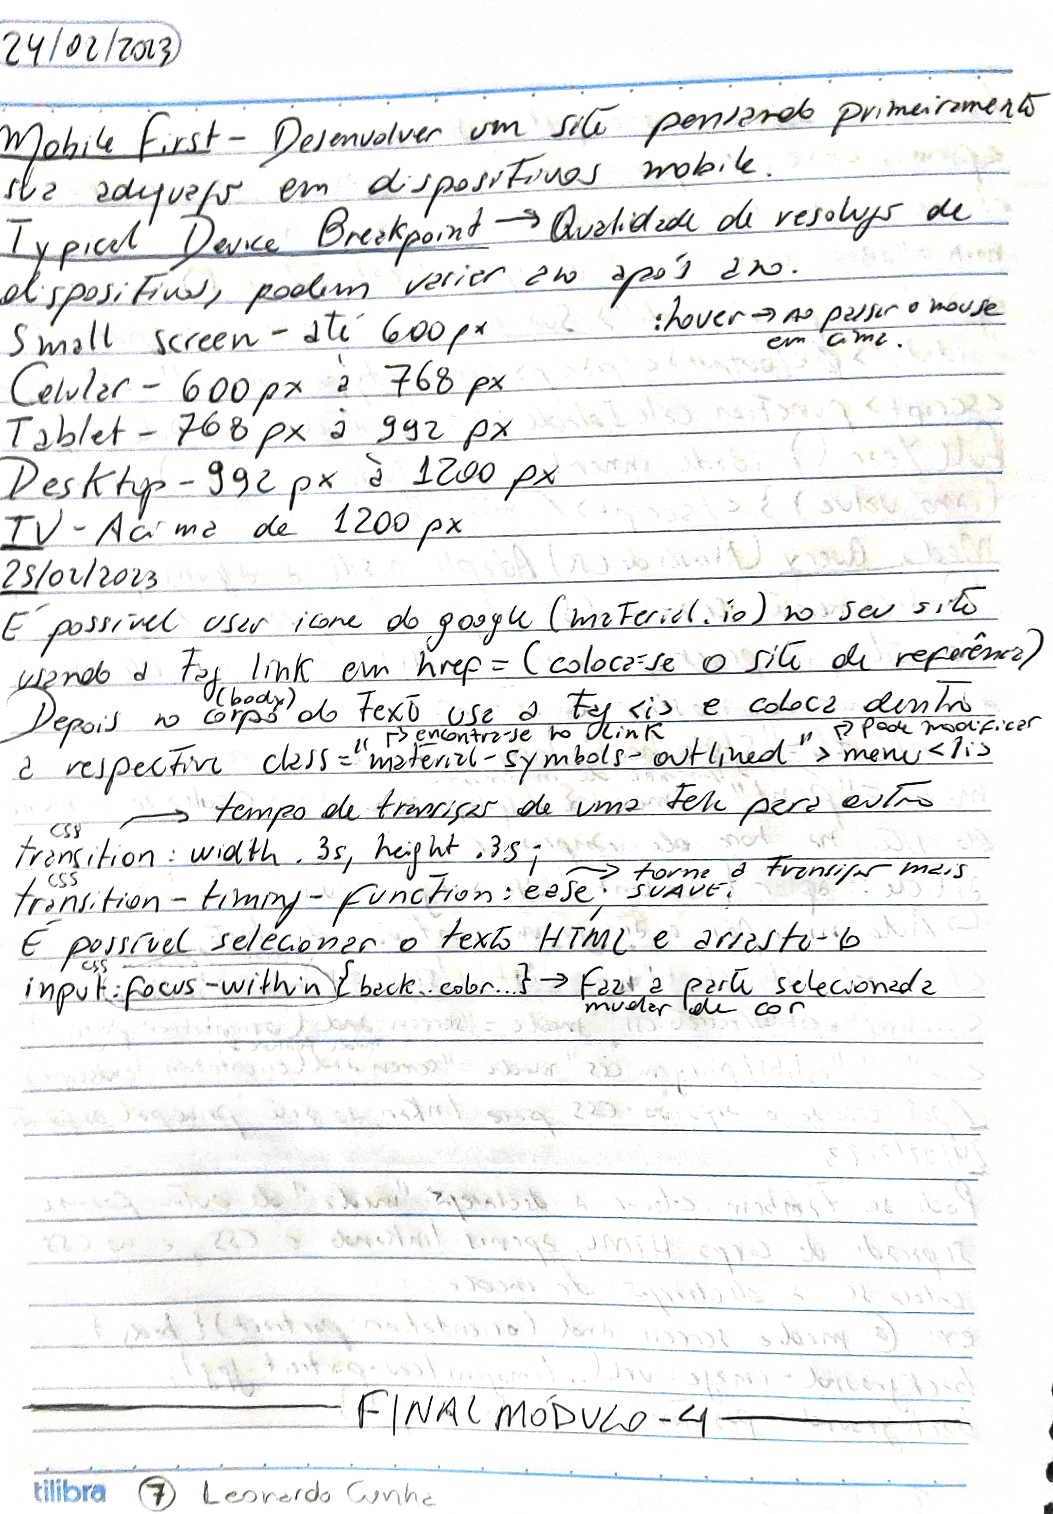 24/02/2023
Mobile First - Desenvolver um site pensando primeiramente
sua adequaçs em dispositivos mobile.
Typical Device Breakpoint → Qualidade de resoluçs de
dispositivos, podem varier ano após ano.
Small screen - até 600 px
:hover → Ao passar o mouse
em cima.
Celular - 600 px à 768 px
Tablet - 768 px à 992 px
Desktop - 992 px à 1200 px
TV - Acima de 1200 px
25/02/2023
É possível usar icone do google (material.io) no seu site
usando a tag link em href = (coloca-se o site de referência)
(body)
Depois no corpo do texto use a tag <i> e coloca dentro
↱ encontra-se no link ↱ Pode modificar
a respectiva class = "material-symbols-outlined" > menu </i>
→ tempo de transiçao de uma tela para outra
css
transition: width .3s, height .3s;
→ torna a transiçao mais
css
transition-timing-function: ease; SUAVE.
É possível selecionar o texto HTML e arrasta-lo
css
input:focus-within {back..color...} → Faz a parte selecionada
mudar de cor
FINAL MÓDULO-4
tilibra 7 Leonardo Cunha